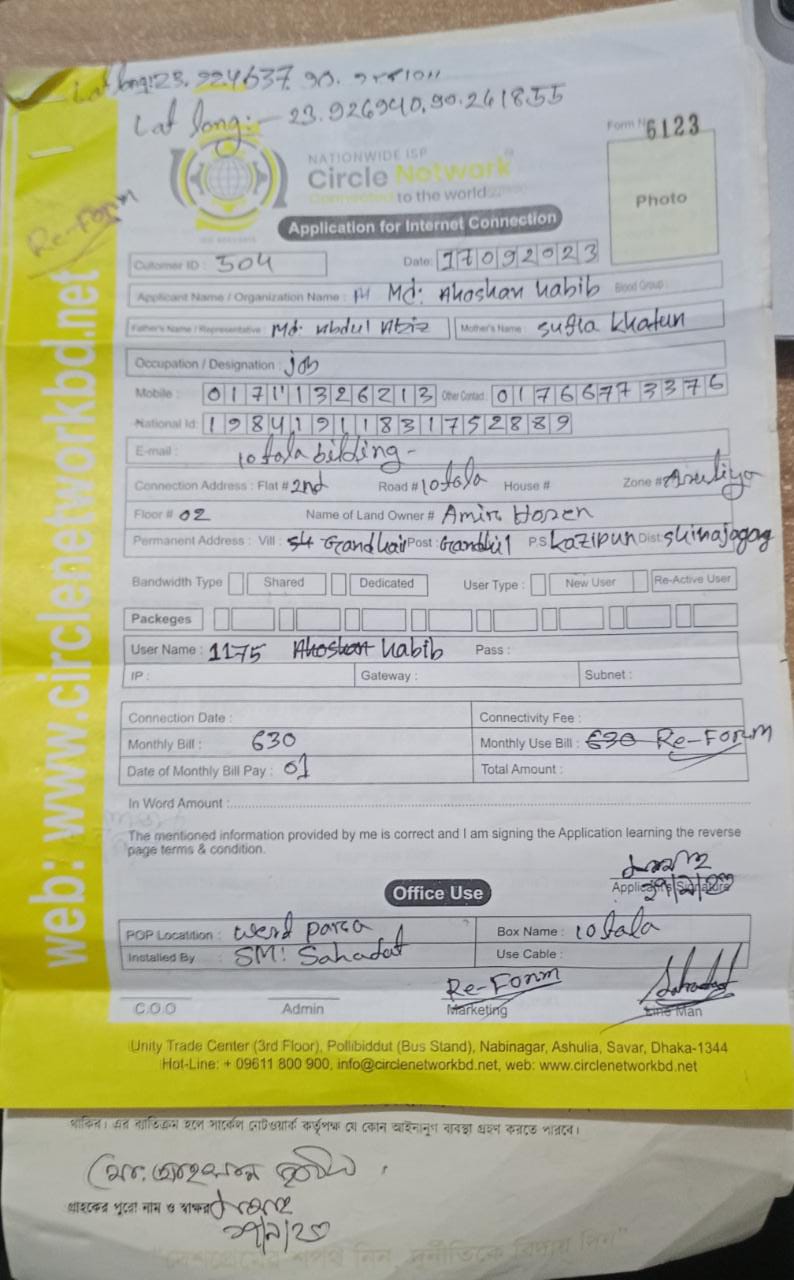 Lat long:- 23.926940, 90.261855
Form N 6123
NATIONWIDE ISP
Circle Network
Connected to the world
Photo
Re-Form
Application for Internet Connection
Cutomer ID : 504 Date: 17092023
Applicant Name / Organization Name : Md: Ahoshan Habib Blood Group :
Father's Name / Representative : Md: Abdul Aziz Mother's Name : Sufia Khatun
Occupation / Designation : job
Mobile : 01711326213 Other Contact : 01766773376
National Id: 19841911831752889
E-mail :
10 tala bilding-
Connection Address : Flat # 2nd Road # 10 tala House # Zone # Asuliya
Floor # 02 Name of Land Owner # Amir Hosen
Permanent Address : Vill : Post : PS Kazipur Dist
Bandwidth Type Shared Dedicated User Type : New User Re-Active User
Packeges
User Name : 1175 Ahoshan Habib Pass :
IP : Gateway : Subnet :
Connection Date : Connectivity Fee :
Monthly Bill : 630 Monthly Use Bill : 630 Re-Form
Date of Monthly Bill Pay : 01 Total Amount :
In Word Amount :
The mentioned information provided by me is correct and I am signing the Application learning the reverse
page terms & condition.
Applicant's Signature
Office Use
POP Locatition : Box Name : 10 tala
Installed By : SM: Sahadat Use Cable :
Re-Form
C.O.O Admin Marketing Line Man
Unity Trade Center (3rd Floor), Pollibiddut (Bus Stand), Nabinagar, Ashulia, Savar, Dhaka-1344
Hot-Line: + 09611 800 900, info@circlenetworkbd.net, web: www.circlenetworkbd.net
web: www.circlenetworkbd.net
থাকিব। এর ব্যতিক্রম হলে সার্কেল নেটওয়ার্ক কর্তৃপক্ষ যে কোন আইনানুগ ব্যবস্থা গ্রহণ করতে পারবে।
মো. আহসান হাবিব
গ্রাহকের পুরো নাম ও স্বাক্ষর